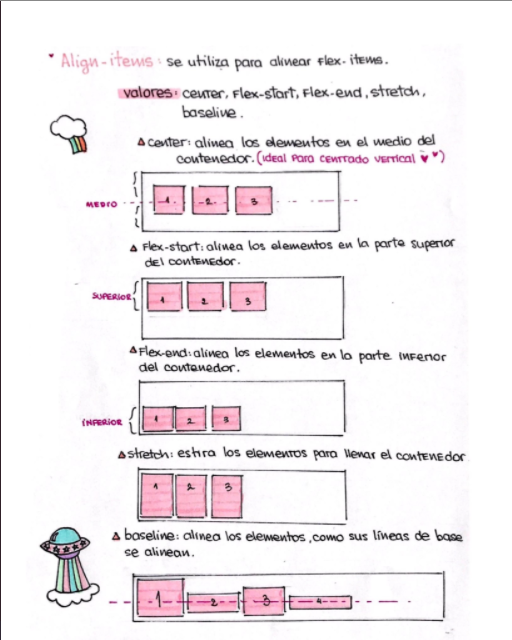 * Align-items: se utiliza para alinear flex-items.
valores: center, flex-start, flex-end, stretch,
baseline.
center: alinea los elementos en el medio del
contenedor. (ideal para centrado vertical ♥ ♥)
MEDIO
1 2 3
flex-start: alinea los elementos en la parte superior
del contenedor.
SUPERIOR
1 2 3
Flex-end: alinea los elementos en la parte inferior
del contenedor.
INFERIOR
1 2 3
stretch: estira los elementos para llenar el contenedor
1 2 3
baseline: alinea los elementos, como sus líneas de base
se alinean.
1 2 3 4